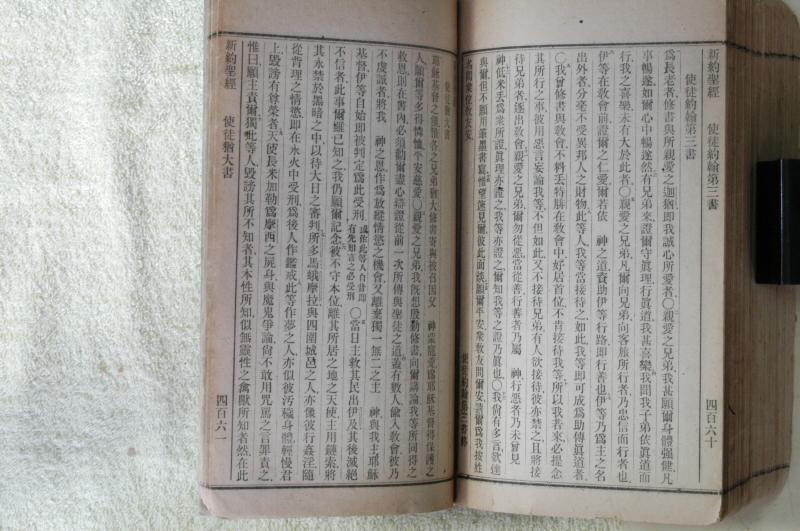 新約聖經 使徒約翰第三書 四百六十
使徒約翰第三書
爲長老者、修書與所親愛之迦猶、即我誠心所愛者、○親愛之兄弟、我甚願爾身體强健、凡
事暢遂、如爾心中暢遂、然有兄弟來、證爾守眞理、行眞道、我甚喜樂、我聞我子弟依眞道而
行、我之喜樂、未有大於此者、○親愛之兄弟、凡爾向兄弟、向客旅所行者、乃忠信而行者也、
伊等在敎會前、證爾之仁愛、爾若依 神之道、資助伊等行路、即行善也、伊等乃爲主之名
出外者、分毫不受異邦人之財物、此等人、我等當接待之、如此、我等即可成爲助傳眞道者、
○我曾修書與敎會、不料丟特腓在敎會中、好居首位、不肯接待我等、所以我若來、必提念
其所行之事、彼用惡言妄論我等、不但如此、又不接待兄弟、有人欲接待、彼亦禁之、且將接
待兄弟者、逐出敎會、親愛之兄弟、爾勿從惡、當從善、行善者、乃屬 神、行惡者、乃未曾見
神、低米丟爲衆所證、眞理亦證之、我等亦證之、爾知我等之證、乃眞也、○我尙有多言、欲達
與爾、但不願用筆墨書寫、惟望速見爾、彼此面談、願爾平安、衆敎友問爾安、請爾爲我按姓
名問衆位敎友安、 使徒約翰第三書終
使徒猶大書
耶穌基督之僕、雅各之兄弟猶大、修書寄與被召、因父 神蒙寵愛、爲耶穌基督得保護之
人、願爾等多得憐恤平安慈愛、○親愛之兄弟、我旣想慇懃修書、向爾講論我等所同得之
救恩、則在書內、必須勸爾盡心辯證從前一次所傳與聖徒之道、蓋有數人偸入敎會、彼乃
不虔誠者、將我 神之恩、作爲放縱情慾之機會、又離棄獨一無二之主 神、與我主耶穌
基督、伊等自始即被判定爲此受刑、或作此等人自昔即有先知言之必受刑○當日主救其民出伊及、其後滅絕
不信者、此事爾雖已知之、我仍願爾記念、被不守本位、離其所居之地之天使、主用鏈索將
其永禁於黑暗之中、以待大日之審判、所多馬、蛾摩拉、與四圍城邑之人、亦像彼行姦淫、隨
從背理之情慾、即在永火中受刑、爲後人作鑑戒、此等作夢之人、亦似彼污穢身體、輕慢君
上、毀謗有尊榮者、天使長米加勒爲摩西之屍身、與魔鬼爭論、尙不敢用咒罵之言罪責之、
惟曰、願主責爾、獨此等人、毀謗其所不知者、其本性所知、似無靈性之禽獸所知者然、在此
新約聖經 使徒猶大書 四百六一